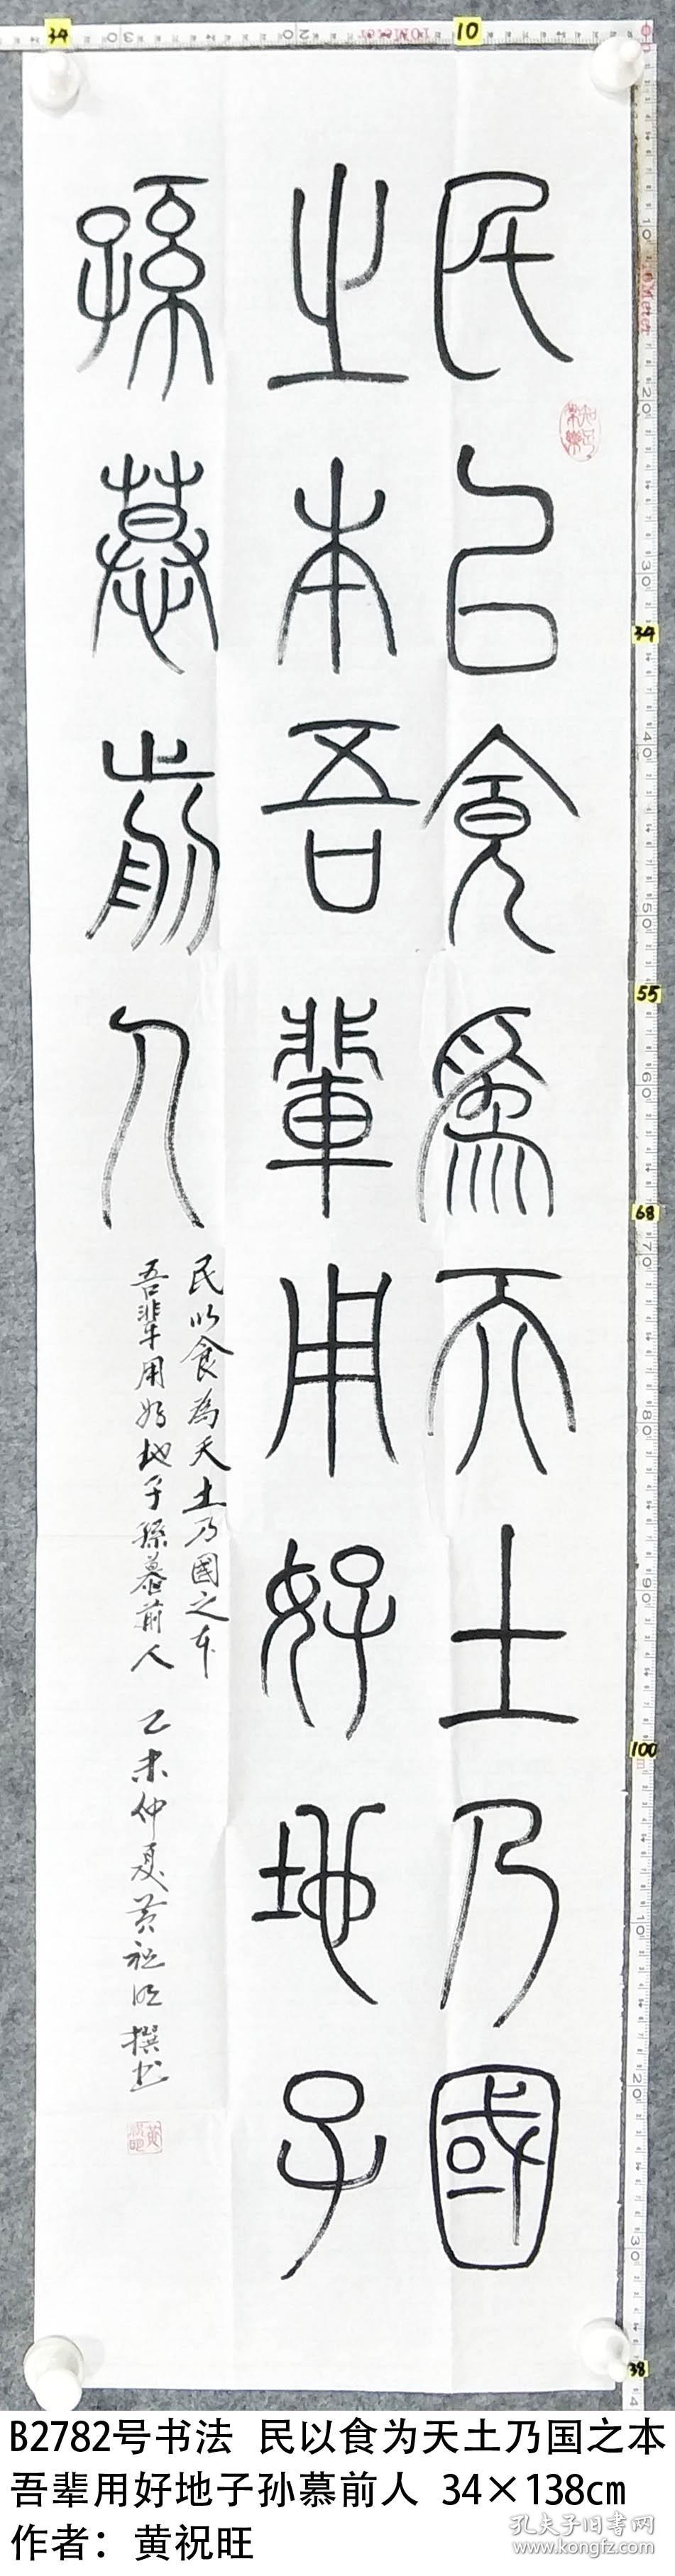 民㠯食爲天土乃國
之本吾輩用好地子
孫慕前人
民以食為天土乃國之本
吾輩用好地子孫慕前人 乙未仲夏黃祝旺撰书
知足常樂
B2782号书法 民以食为天土乃国之本
吾辈用好地子孙慕前人 34×138cm
作者：黄祝旺
孔夫子旧书网
www.kongfz.com
34
10
34
55
68
100
38